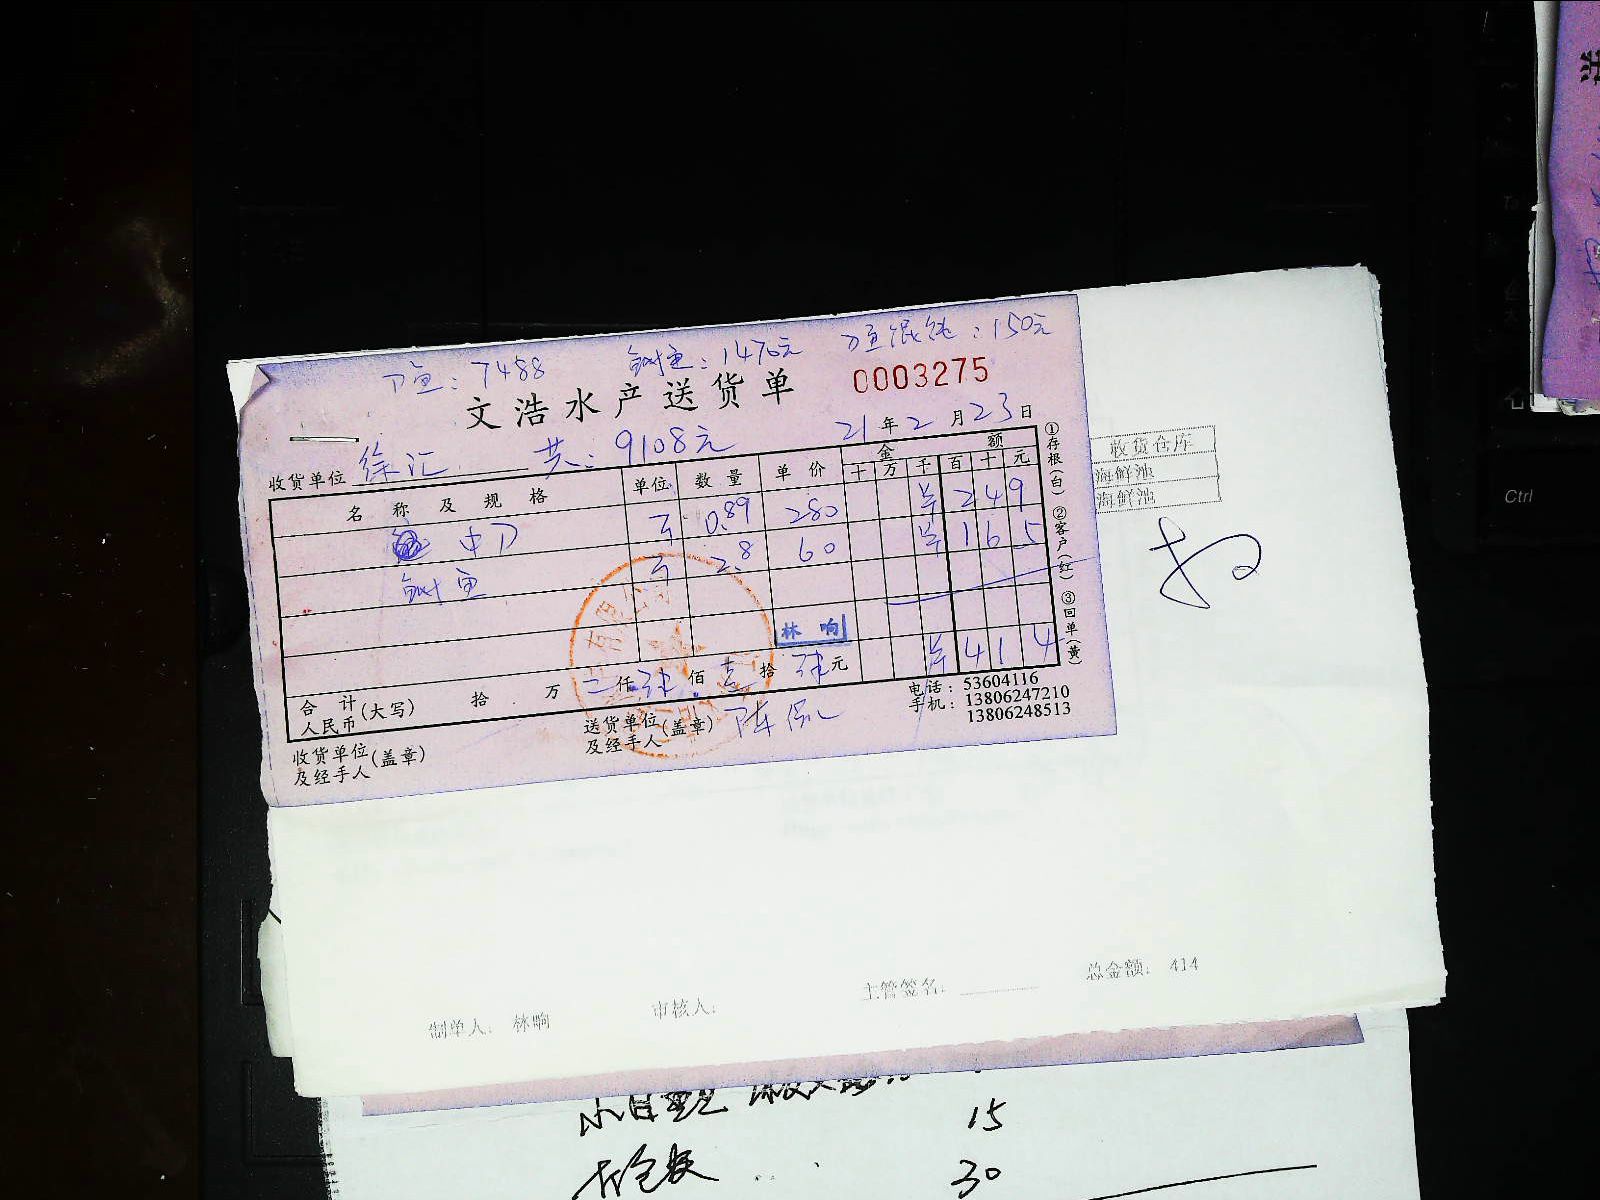 刀鱼：7488 鮰鱼：1470元 刀鱼馄饨：150元
文浩水产送货单 0003275
收货单位 徐汇 共：9108元 21年2月23日
名称及规格 单位 数量 单价 金额 十 万 千 百 十 元
中刀 0.89 280 249
鱼 2.8 60 165
林响
414
合计 人民币(大写) 拾 万 仟 佰 拾 元
收货单位(盖章) 及经手人
送货单位(盖章) 及经手人
电话：53604116
手机：13806247210
13806248513
①存根(白) ②客户(红) ③回单(黄)
收货仓库
海鲜池
海鲜池
制单人：林响 审核人： 主管签名： 总金额：414
15
30
Ctrl